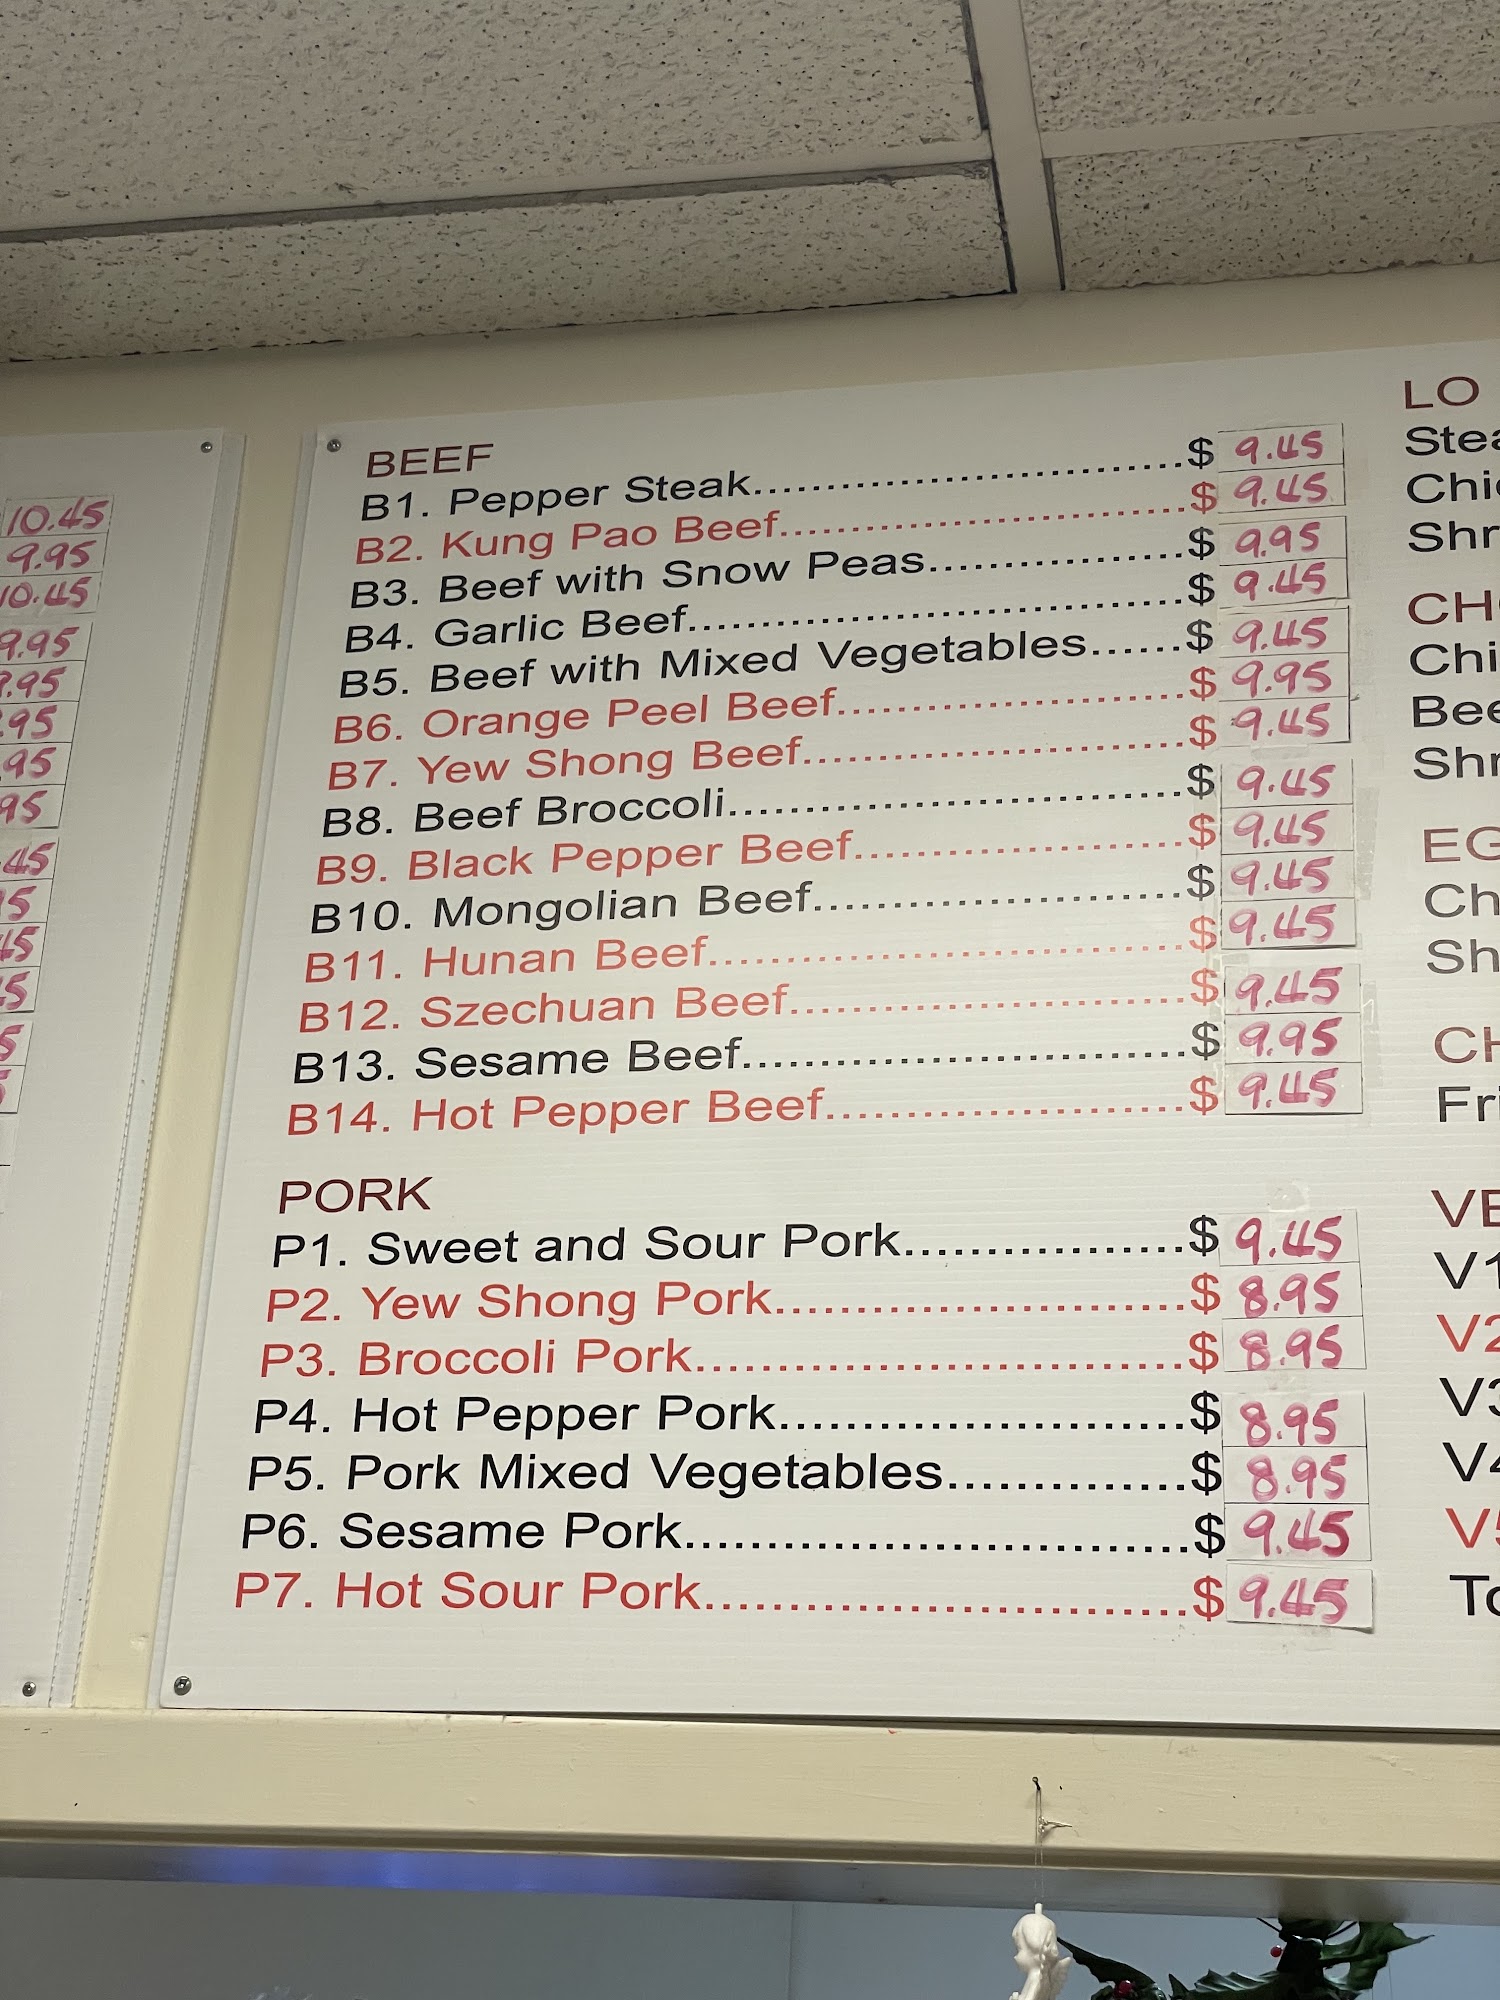 10.45
9.95
10.45
9.95
9.95
.95
.95
95
.45
45
45
BEEF
B1. Pepper Steak..............................$ 9.45
B2. Kung Pao Beef............................$ 9.45
B3. Beef with Snow Peas.................$ 9.95
B4. Garlic Beef..................................$ 9.45
B5. Beef with Mixed Vegetables......$ 9.45
B6. Orange Peel Beef.......................$ 9.95
B7. Yew Shong Beef.........................$ 9.45
B8. Beef Broccoli...............................$ 9.45
B9. Black Pepper Beef......................$ 9.45
B10. Mongolian Beef.........................$ 9.45
B11. Hunan Beef................................$ 9.45
B12. Szechuan Beef..........................$ 9.45
B13. Sesame Beef.............................$ 9.95
B14. Hot Pepper Beef........................$ 9.45
PORK
P1. Sweet and Sour Pork.................$ 9.45
P2. Yew Shong Pork.........................$ 8.95
P3. Broccoli Pork..............................$ 8.95
P4. Hot Pepper Pork.........................$ 8.95
P5. Pork Mixed Vegetables..............$ 8.95
P6. Sesame Pork..............................$ 9.45
P7. Hot Sour Pork.............................$ 9.45
LO
Chi
Shr
Chi
Bee
Shr
EG
Ch
Sh
Fri
V1
V2
V3
V4
V5